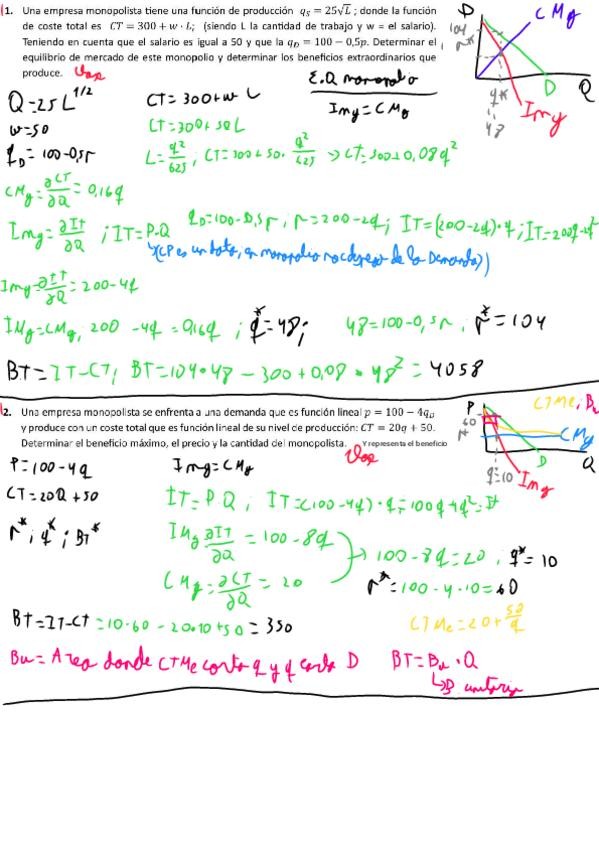 1. Una empresa monopolista tiene una función de producción q_S = 25√L ; donde la función
de coste total es CT = 300 + w · L; (siendo L la cantidad de trabajo y w = el salario).
Teniendo en cuenta que el salario es igual a 50 y que la q_D = 100 − 0,5p. Determinar el
equilibrio de mercado de este monopolio y determinar los beneficios extraordinarios que
produce.
P CMg
104
D Q
q*
48
Img
E.Q monopolio
Q=25L^1/2 CT=300+w L Img=CMg
w=50 CT=300+50L
q_D=100-0,5p L=q²/625, CT=300+50·q²/625 → CT=300+0,08q²
CMg=∂CT/∂Q=0,16q
Img=∂IT/∂Q ; IT=P·Q q_D=100-0,5p, p=200-2q; IT=(200-2q)·q; IT=200q-2q²
Img=∂IT/∂Q=200-4q
IMg=CMg, 200-4q=0,16q ; q*=48; 48=100-0,5p ; p*=104
BT=IT-CT; BT=104·48-300+0,08·48²=4058
2. Una empresa monopolista se enfrenta a una demanda que es función lineal p = 100 − 4q_D
y produce con un coste total que es función lineal de su nivel de producción: CT = 20q + 50.
Determinar el beneficio máximo, el precio y la cantidad del monopolista. Y representa el beneficio
P CTMe; Bu
60
CMg
D Q
q=10 Img
P=100-4q Img=CMg
CT=20Q+50 IT=P·Q, IT=(100-4q)·q=100q+q²=It
p*; q*; BT* IMg ∂IT/∂Q=100-8q → 100-8q=20, q*=10
CMg=∂CT/∂Q=20 p*=100-4·10=60
BT=IT-CT=10·60-20·10+50=350 CTMe=20+50/q
Bu=Area donde CTMe corta q y q corta D BT=Bu·Q
↳B unitario